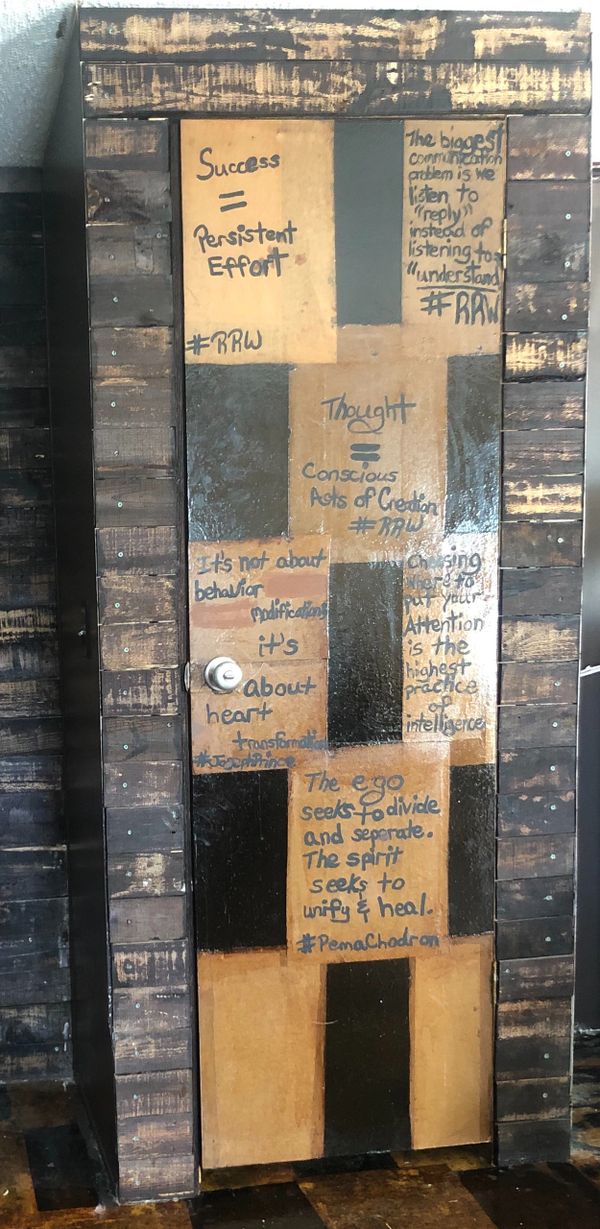 Success
=
Persistent
Effort
#RRW
The biggest
communication
problem is we
listen to
"reply"
instead of
listening to
"understand
#RRW
Thought
=
Conscious
Acts of Creation
#RRW
It's not about
behavior
modifications
it's
about
heart
transformation
#JosephPrince
Choosing
where to
put your
Attention
is the
highest
practice
of
intelligence
The ego
seeks to divide
and seperate.
The spirit
seeks to
unify & heal.
#PemaChodron